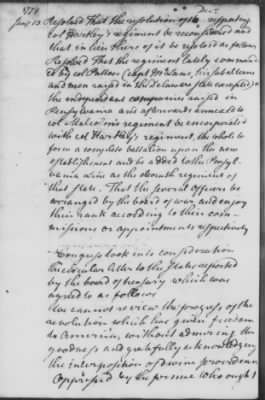 1779
Jany 13 Resolved That the resolution of the respecting
Col Hartley's regiment be reconsidered and
that in lieu thereof it be resolved as follows
Resolved That the regiment lately command
ed by col Patton (capt McLane, his subalterns
and men raised in the Delaware state excepted) &
the independent companies raised in
Pensylvania and afterwards annexed to
col Malcolm's regiment be incorporated
with col Hartley's regiment, the whole to
form a complete battalion upon the new
establishment and be added to the Pensyl-
vania Line as the eleventh regiment of
that state. That the several officers be
arranged by the board of war, and enjoy
their rank according to their com-
missions or appointments respectively
Congress took into consideration
the circular letter to the states reported
by the board of treasury which was
agreed to as follows
We cannot review the progress of the
revolution which has given freedom
to America, without admiring the
goodness and gratefully acknowledging
the interposition of divine providence
Oppressed by